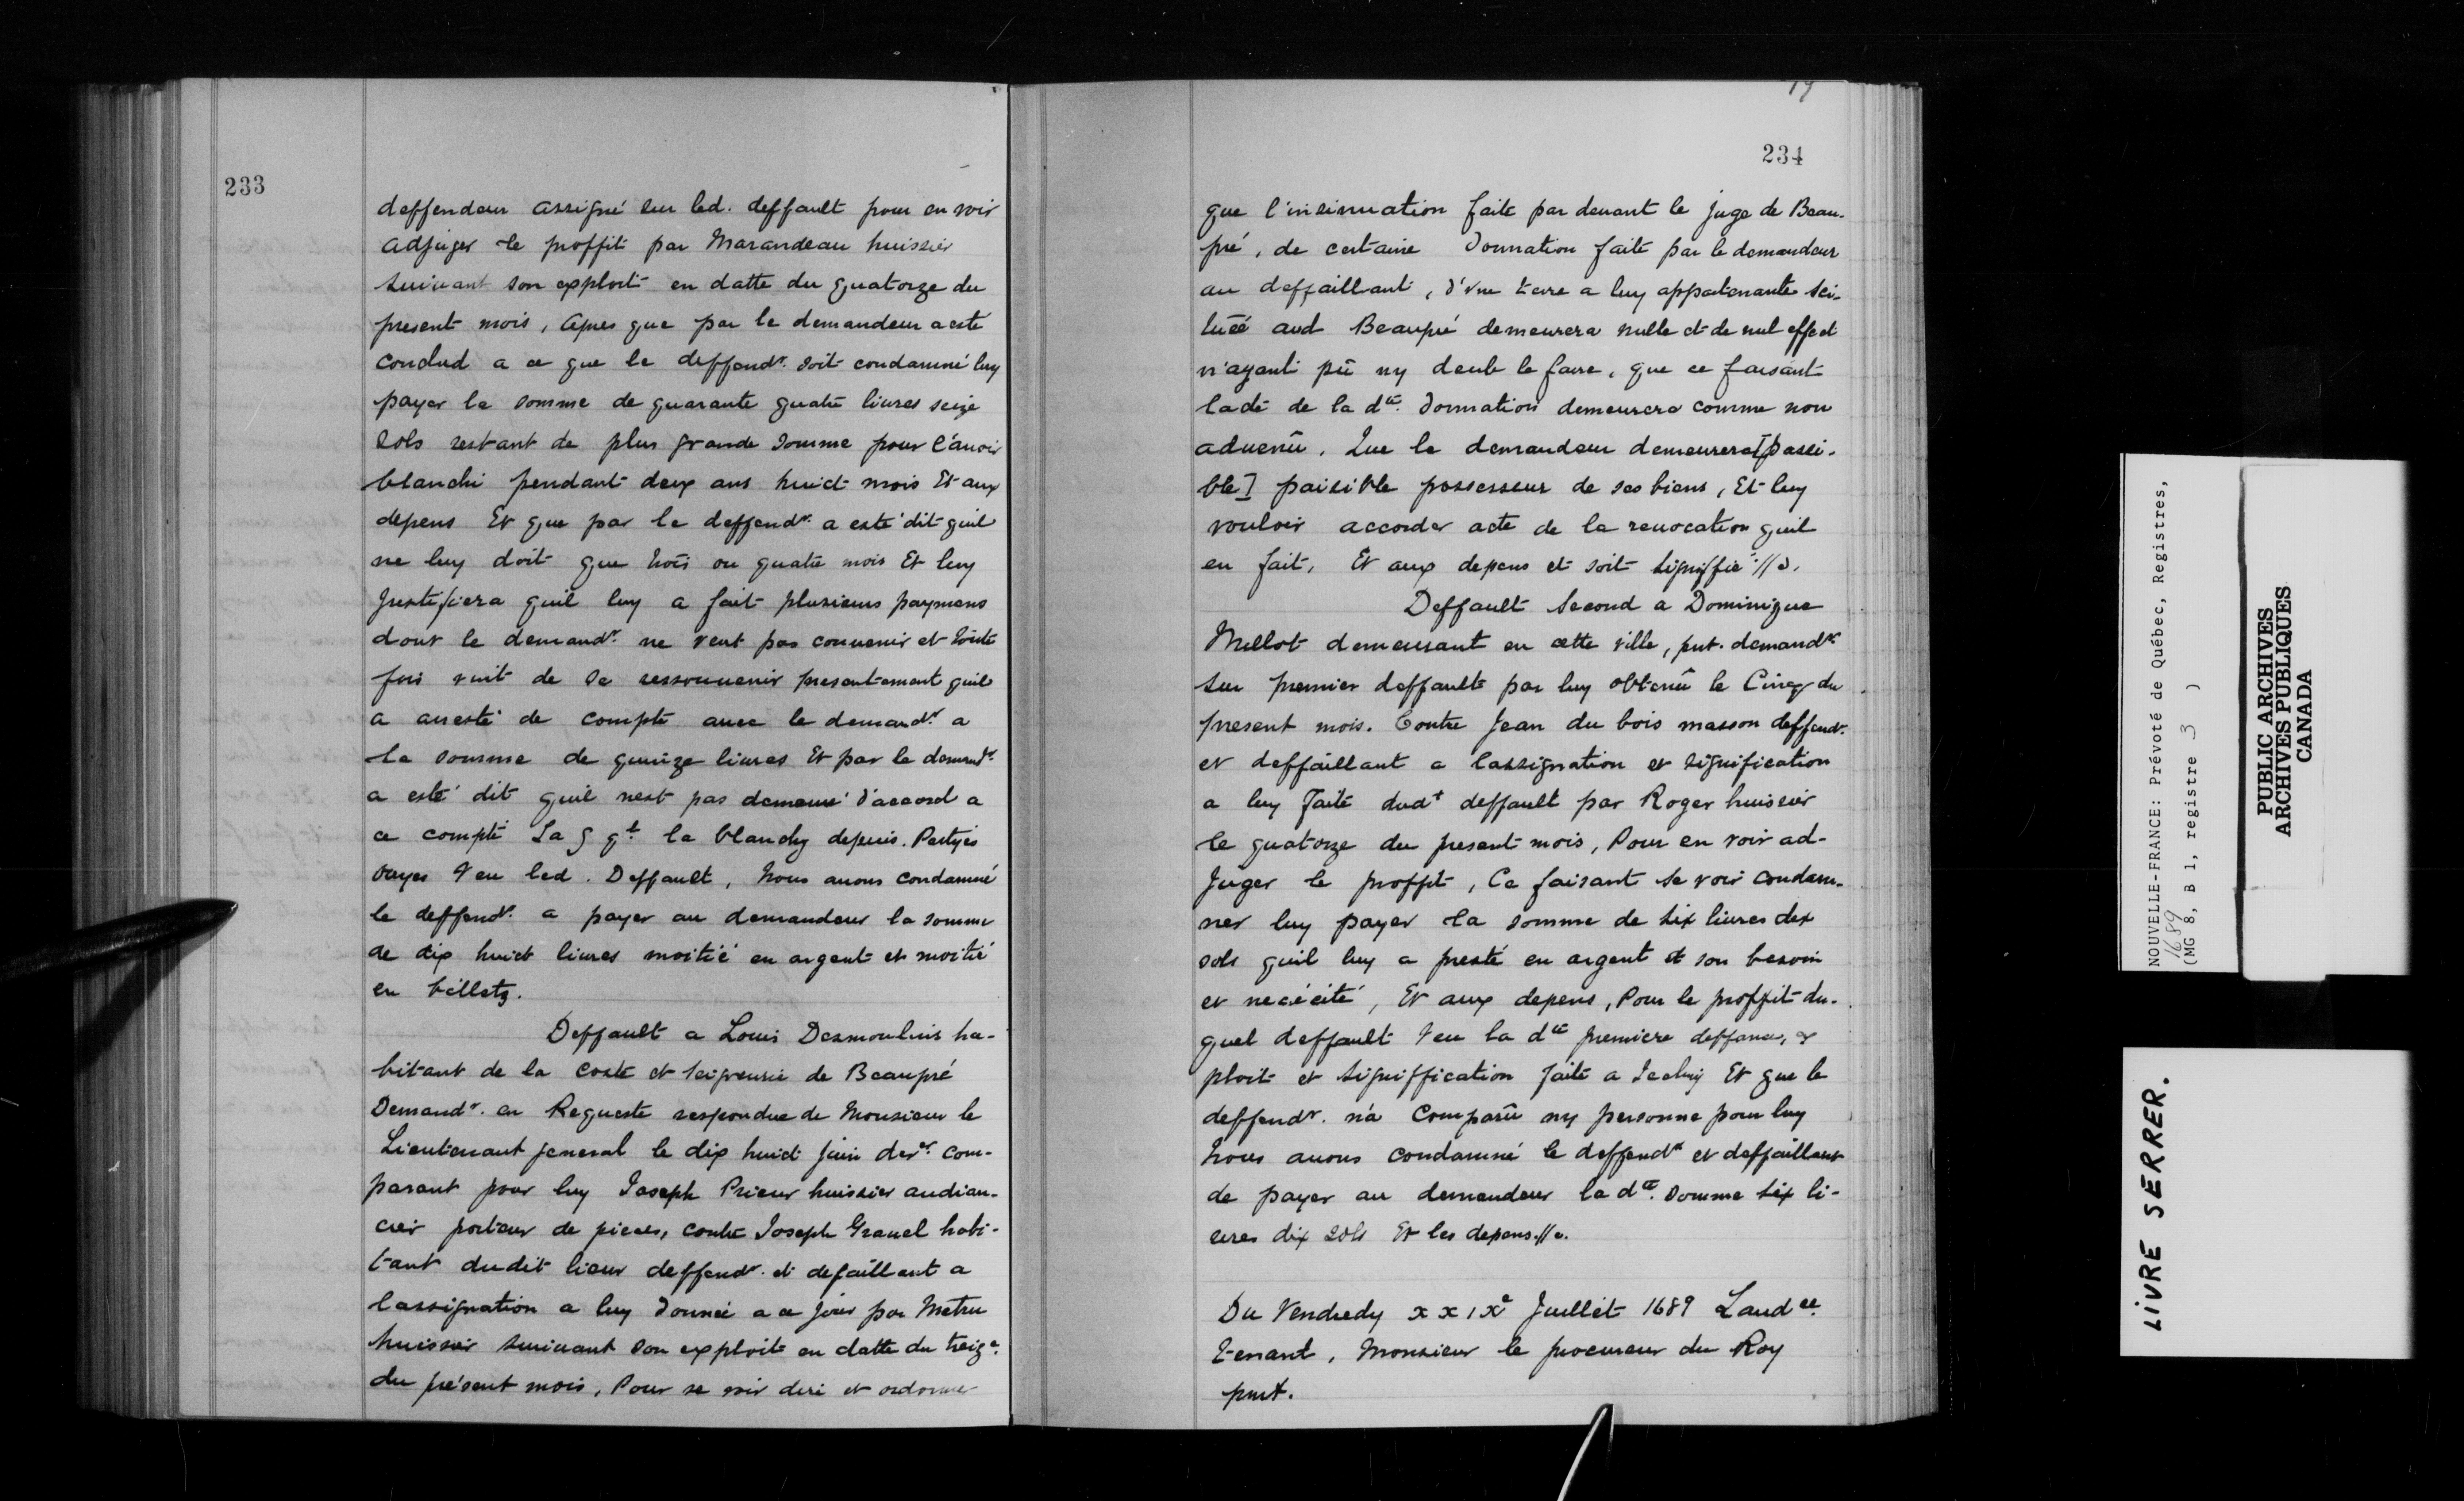 233
deffendeur assigné sur led. deffault pour en voir
adjuger le proffit par Marandeau huissier
suiuant son exploit en datte du quatorze du
present mois, apres que par le demandeur a esté
conclud a ce que le deffendr. soit condamné luy
payer la somme de quarante quatre liures seize
sols restant de plus grande somme pour l'auoir
blanchi pendant deux ans huict mois Et aux
depens Et que par le deffendr. a esté dit quil
ne luy doit que trois ou quatre mois Et luy
justifiera quil luy a fait plusieurs paymens
dont le demandr. ne veut pas conuenir et toute
fois vint de se ressouuenir presentement quil
a arresté de compte auec le demandr. a
la somme de quinze liures Et par le demandr.
a esté dit quil nest pas demeuré d'accord a
ce compte La qt. la blanchy depuis. Partyes
ouyes Veu led. Deffault, Nous auons condamné
le deffendr. a payer au demandeur la somme
de dix huict liures moitié en argent et moitié
en billets.
Deffault a Louis Desmoulins ha-
bitant de la coste et seigneurie de Beaupré
Demandr. en Requeste respondue de Monsieur le
Lieutenant general le dix huict juin derer. com-
parant pour luy Joseph Prieur huissier audian-
cier porteur de pieces, contre Joseph Grauel habi-
tant dudit lieur deffendr. et defaillant a
lassignation a luy donnée a ce jour par Metru
huissier suiuant son exploit en datte du treize.
du présent mois, Pour se voir dire et ordonner
19
234
que l'insinuation faite par deuant le juge de Beau-
pré, de certaine donnation faite par le demandeur
au deffaillant, d'vne terre a luy appartenante sci-
tuéé aud Beaupré demeurera nulle et de nul effect
n'ayant pû ny deub le faire, que ce faisant
lade de la dte. donnation demeurera comme non
aduenû. Que le demandeur demeurera [passi-
ble] paisible possesseur de ses biens, Et luy
vouloir accorder acte de la reuocation quil
en fait, Et aux depens et soit signiffié://.
Deffault second a Dominique
Millot demeurant en cette ville, pnt. demandr.
sur premier deffault par luy obtenû le Cinq du
present mois. Contre Jean du bois masson deffendr.
et deffaillant a lassignation et signification
a luy faite dudt deffault par Roger huissier
le quatorze du present mois, Pour en voir ad-
juger le proffit, Ce faisant se voir condam-
ner luy payer la somme de six liures dix
sols quil luy a presté en argent et son besoin
et necécité, Et aux depens, Pour le proffit du-
quel deffault Veu la dte premiere deffance, ex
ploit et signiffication faite a Iceluy Et que le
deffendr. n'a comparû ny personne pour luy
Nous auons condamné le deffendr et deffaillant
de payer au demandeur la dte. somme six li-
ures dix sols Et les depens.//.
Du Vendredy xxixe Juillet 1689 Laudce.
tenant, Monsieur le procureur du Roy
pnt.
NOUVELLE-FRANCE: Prévoté de Québec, Registres,
1689
(MG 8, B 1, registre 3 )
PUBLIC ARCHIVES
ARCHIVES PUBLIQUES
CANADA
LIVRE SERRER.